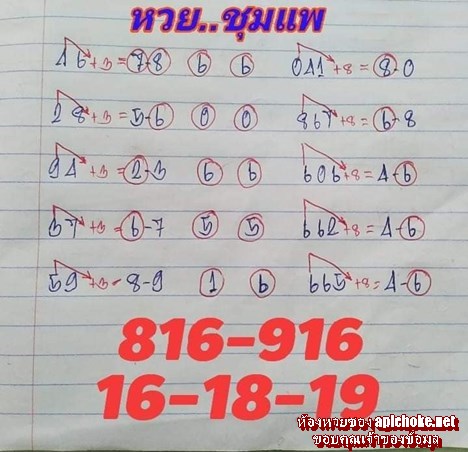 หวย..ชุมแพ
46+3=7-8 6 6 041+8=8-0
28+3=5-6 0 0 867+8=6-8
94+3=2-3 6 6 606+8=4-6
37+3=6-7 5 5 662+8=4-6
59+3-8-9 1 6 665+8=4-6
816-916
16-18-19
ห้องหวยซอง apichoke.net
ขอบคุณเจ้าของข้อมูล